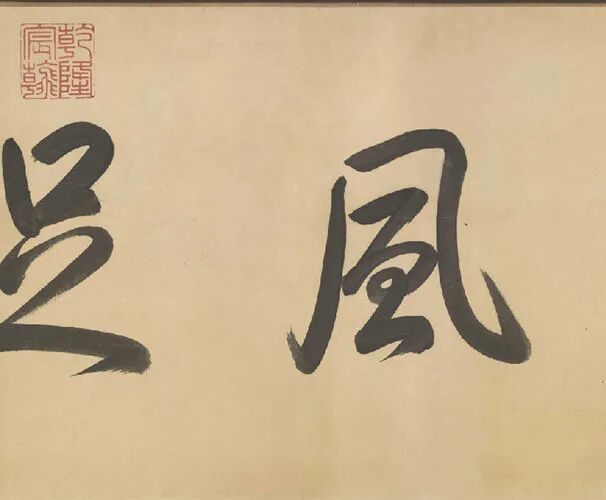 風足
乾隆
宸翰